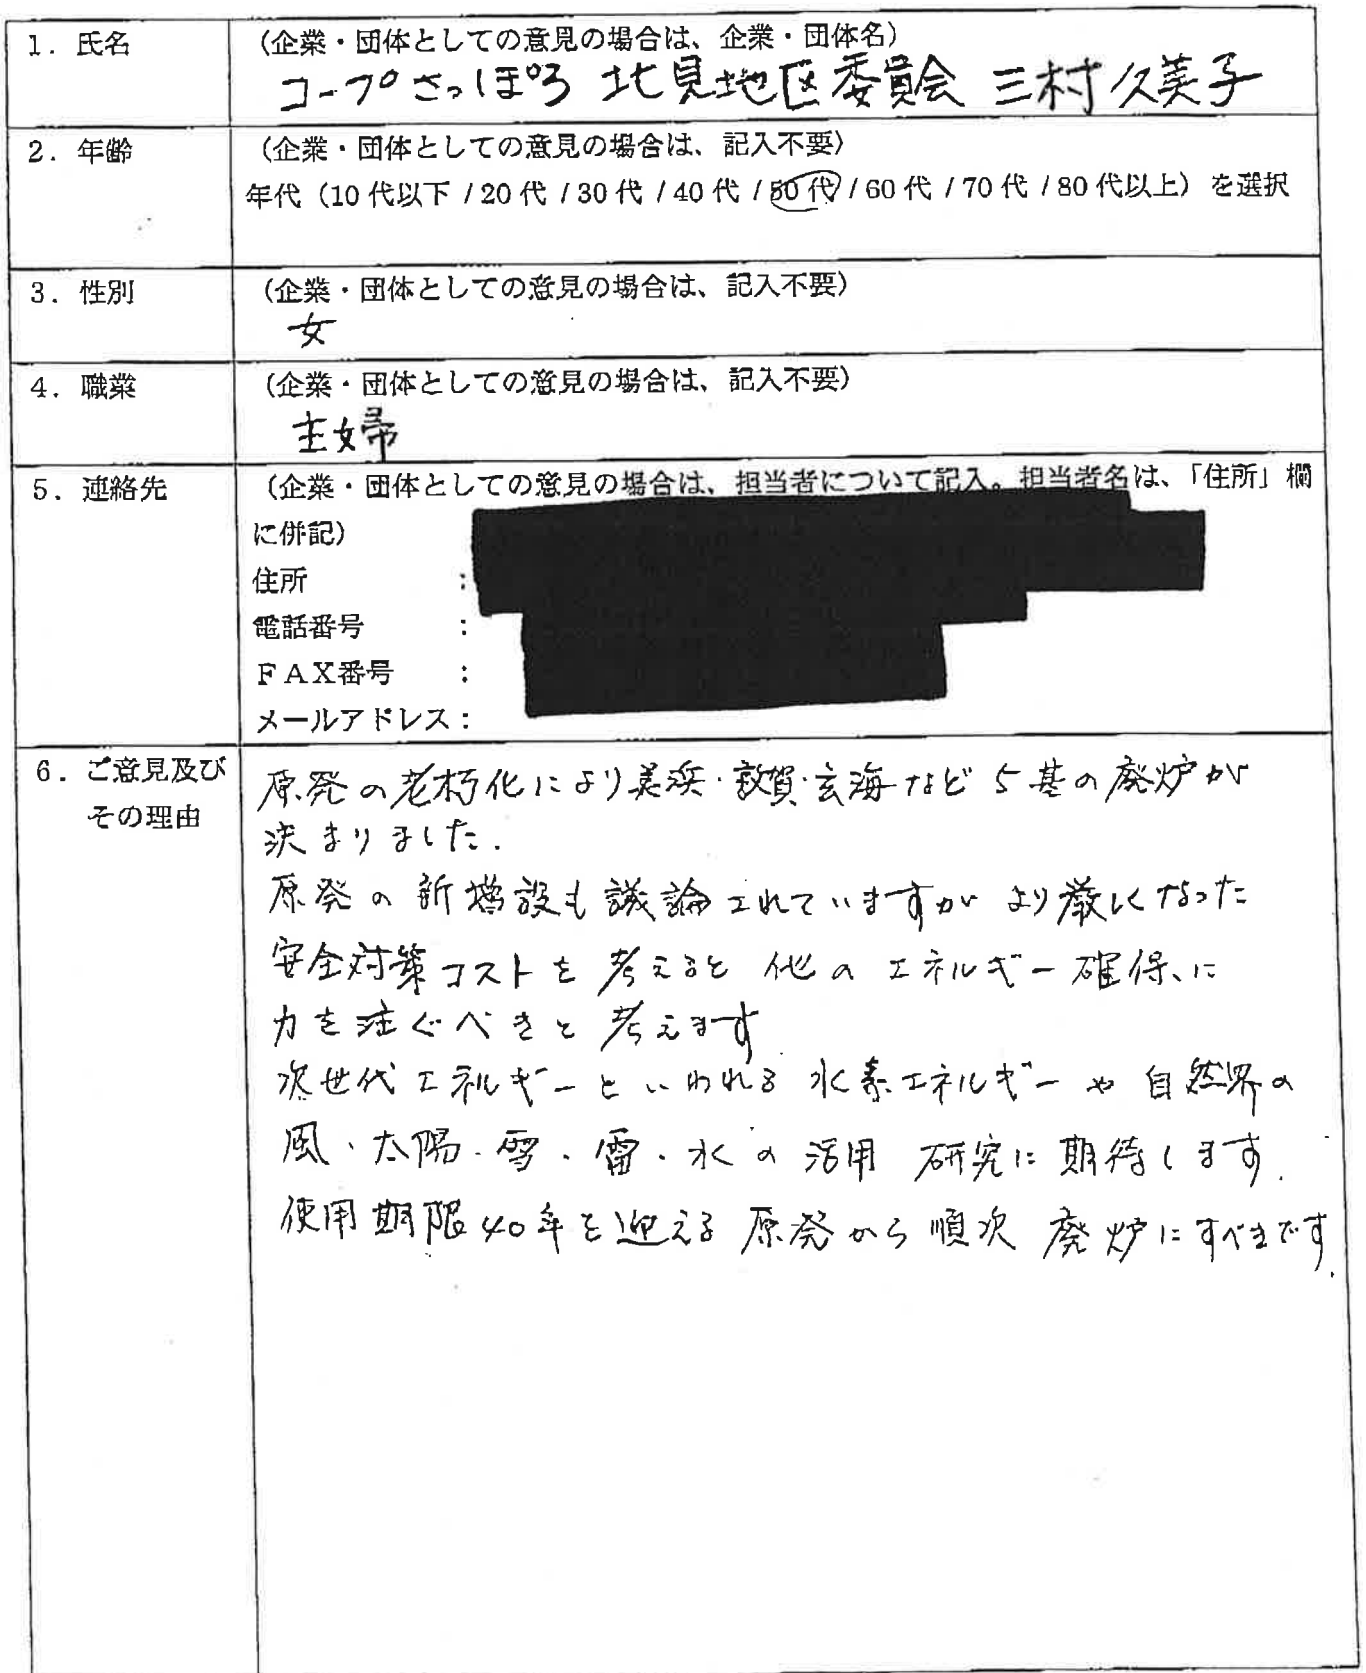 1. 氏名
(企業・団体としての意見の場合は、企業・団体名)
コープさっぽろ 北見地区委員会 三村久美子
2. 年齢
(企業・団体としての意見の場合は、記入不要)
年代(10代以下 / 20代 / 30代 / 40代 / 50代 / 60代 / 70代 / 80代以上)を選択
3. 性別
(企業・団体としての意見の場合は、記入不要)
女
4. 職業
(企業・団体としての意見の場合は、記入不要)
主婦
5. 連絡先
(企業・団体としての意見の場合は、担当者について記入。担当者名は、「住所」欄
に併記)
住所 :
電話番号 :
FAX番号 :
メールアドレス:
6. ご意見及び
その理由
原発の老朽化により美浜・敦賀・玄海など5基の廃炉が
決まりました.
原発の新増設も議論されていますがより厳しくなった
安全対策コストを考えると他のエネルギー確保、に
力を注ぐべきと考えます
次世代エネルギーといわれる水素エネルギーや自然界の
風・太陽・雪・雷・水の活用 研究に期待します.
使用期限40年を迎える原発から順次 廃炉にすべきです.